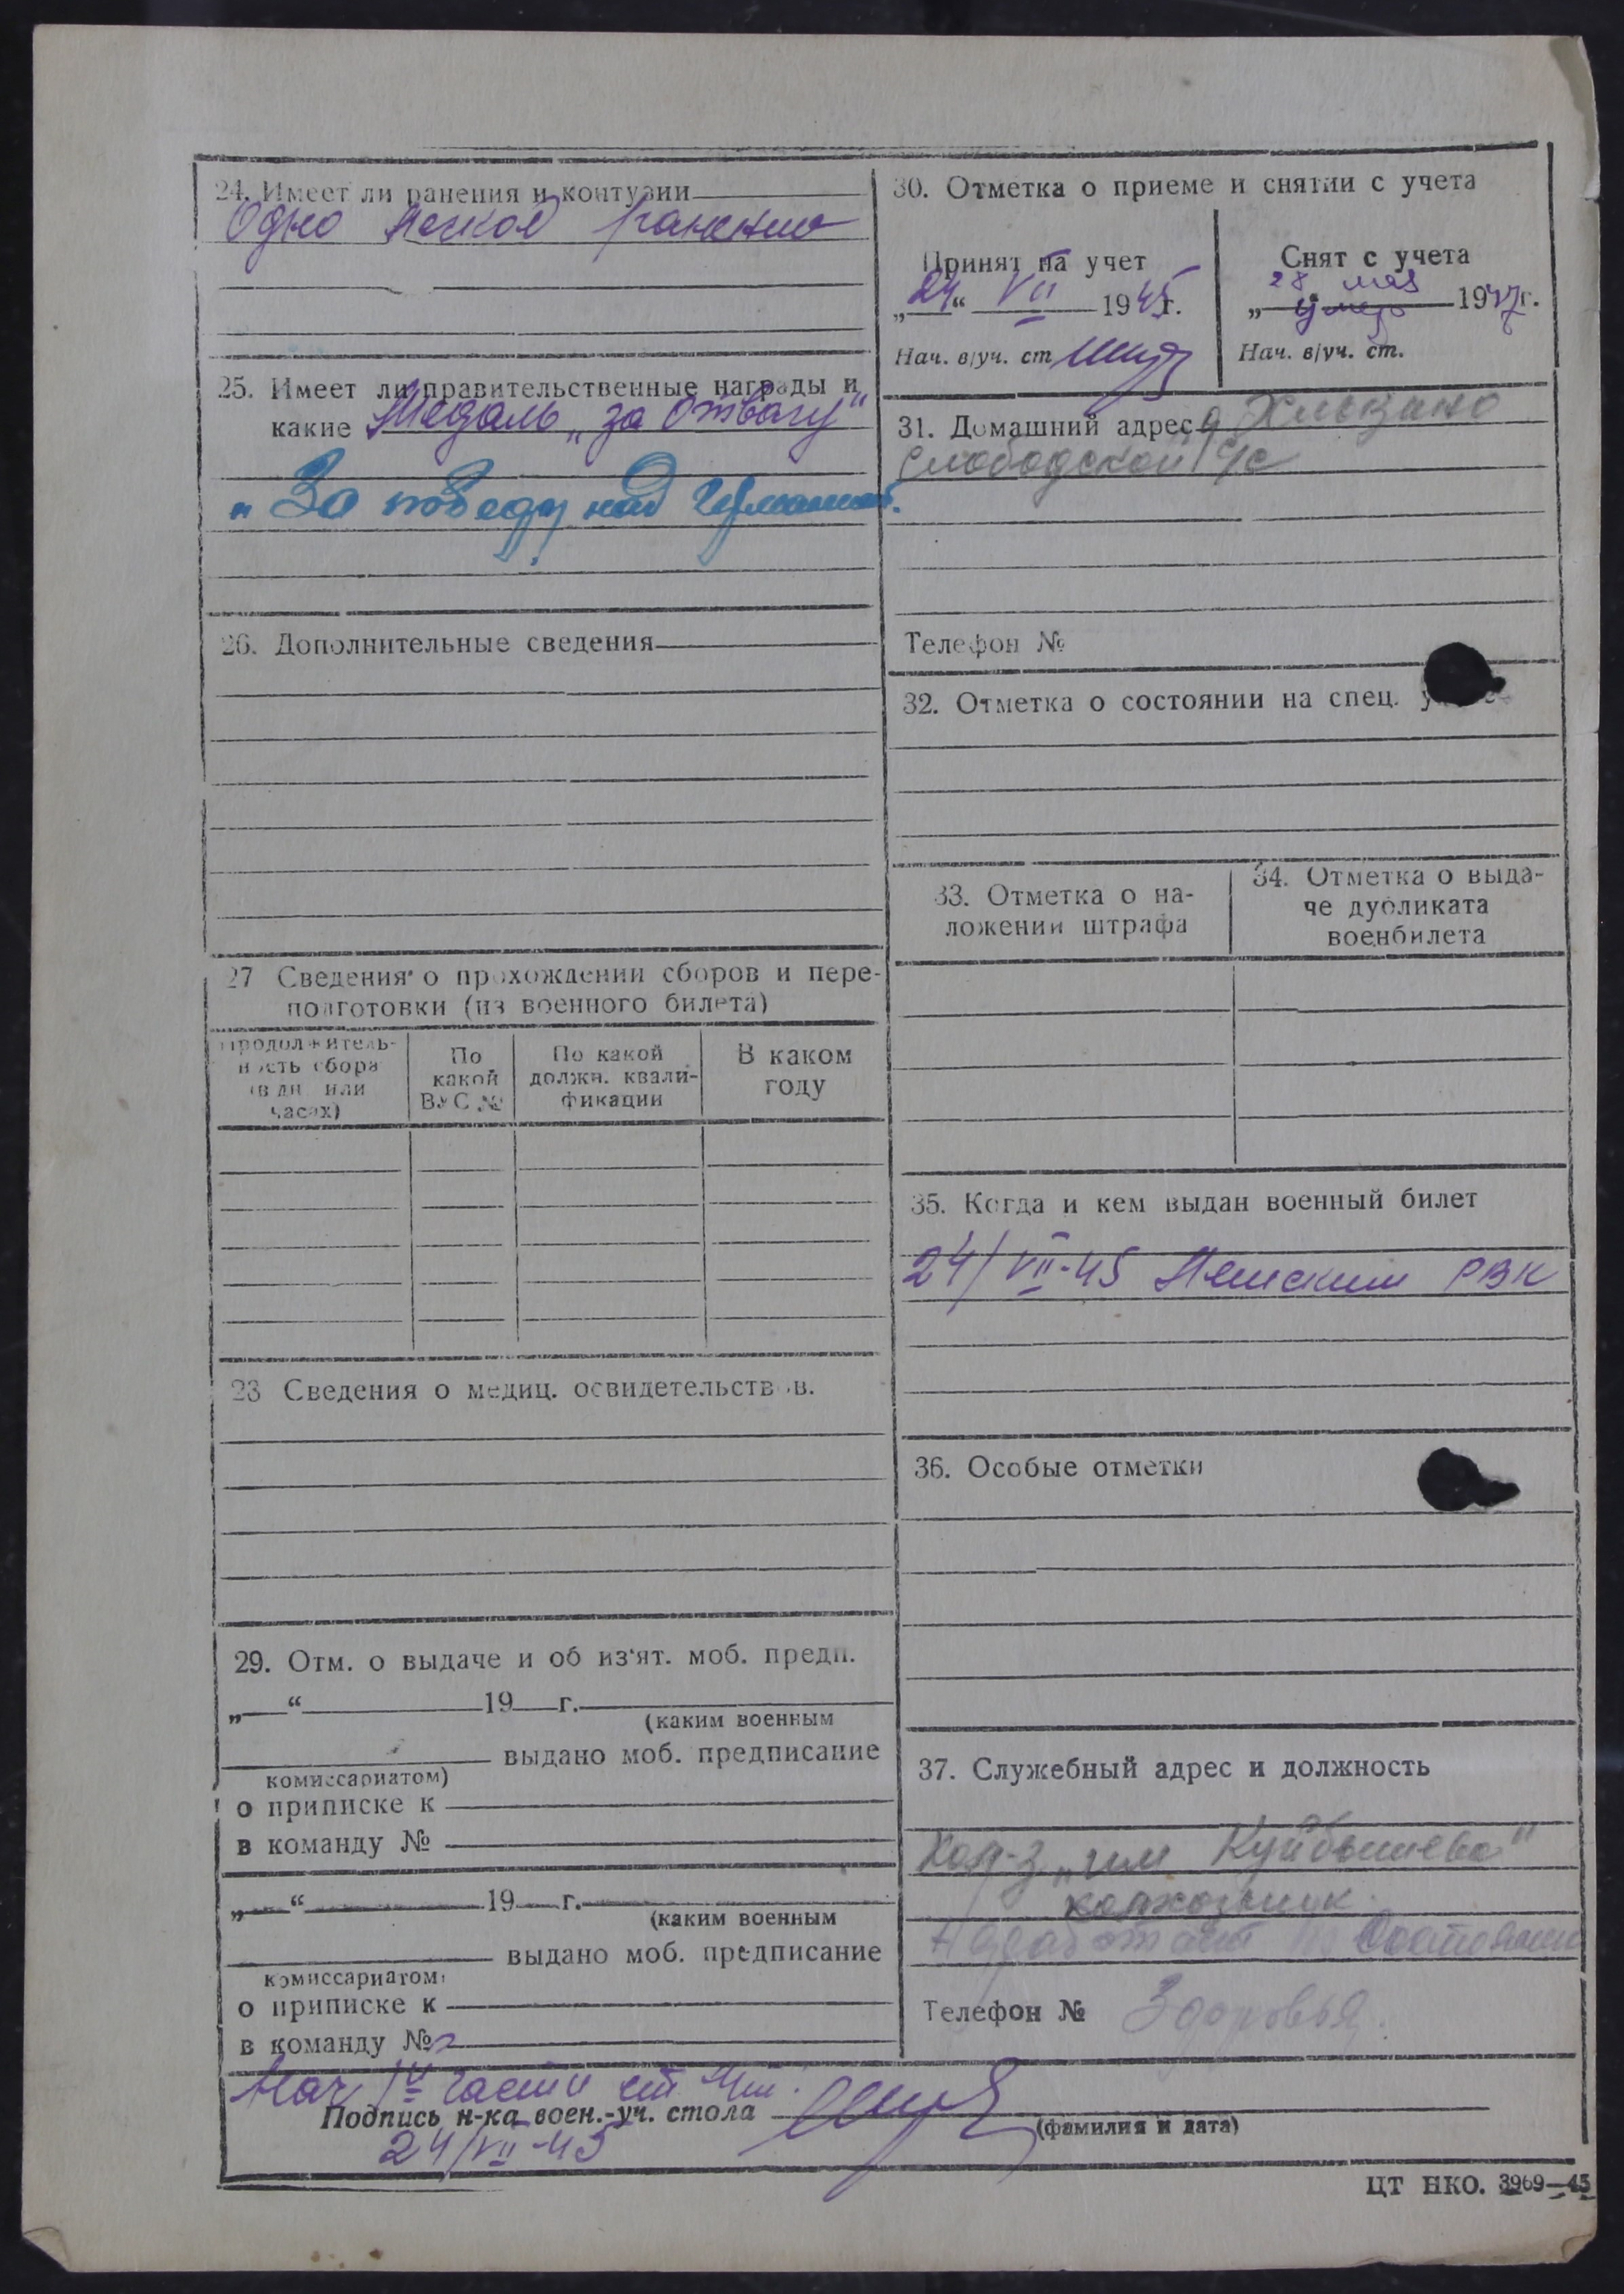 24. Имеет ли ранения и контузии
Одно легкое ранение
25. Имеет ли правительственные награды и
какие Медаль „за отвагу"
„За победу над Германией".
26. Дополнительные сведения
27 Сведения о прохождении сборов и пере-
подготовки (из военного билета)
Продолжитель-
ность сбора
(в дн. или
часах)
По
какой
ВУС №
По какой
должн. квали-
фикации
В каком
году
28 Сведения о медиц. освидетельствов.
29. Отм. о выдаче и об из'ят. моб. предп.
„ “ 19 г.
(каким военным
выдано моб. предписание
комиссариатом)
о приписке к
в команду №
„ “ 19 г.
(каким военным
выдано моб. предписание
комиссариатом)
о приписке к
в команду №
30. Отметка о приеме и снятии с учета
Принят на учет
„24“ VII 1945г.
Нач. в/уч. ст
Снят с учета
28 мая
„ умер 1947г.
Нач. в/уч. ст.
31. Домашний адрес д
Слободской с/с
Телефон №
32. Отметка о состоянии на спец.
33. Отметка о на-
ложении штрафа
34. Отметка о выда-
че дубликата
военбилета
35. Когда и кем выдан военный билет
24/VII-45 РВК
36. Особые отметки
37. Служебный адрес и должность
Кол-з „им Куйбышева"
колхозник.
Не работает по состоянию
Телефон № Здоровья.
Нач IV части
Подпись н-ка воен.-уч. стола
(фамилия и дата)
24/VII-45
ЦТ НКО. 3969—45